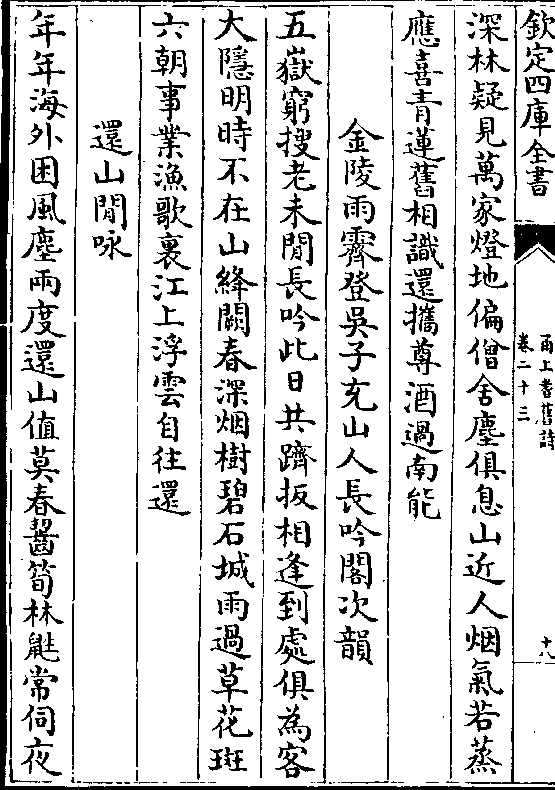 欽定四庫全書
甬上耆舊詩
卷二十三
十八
深林疑見萬家燈地偏僧舍塵俱息山近人烟氣若蒸
應喜青蓮舊相識還攜尊酒過南能
金陵雨霽登吳子充山人長吟閣次韻
五嶽窮搜老未閒長吟此日共躋扳相逢到處俱為客
大隱明時不在山絳闕春深烟樹碧石城雨過草花斑
六朝事業漁歌裏江上浮雲自往還
還山閒咏
年年海外困風塵兩度還山值莫春齧筍林鼪常伺夜